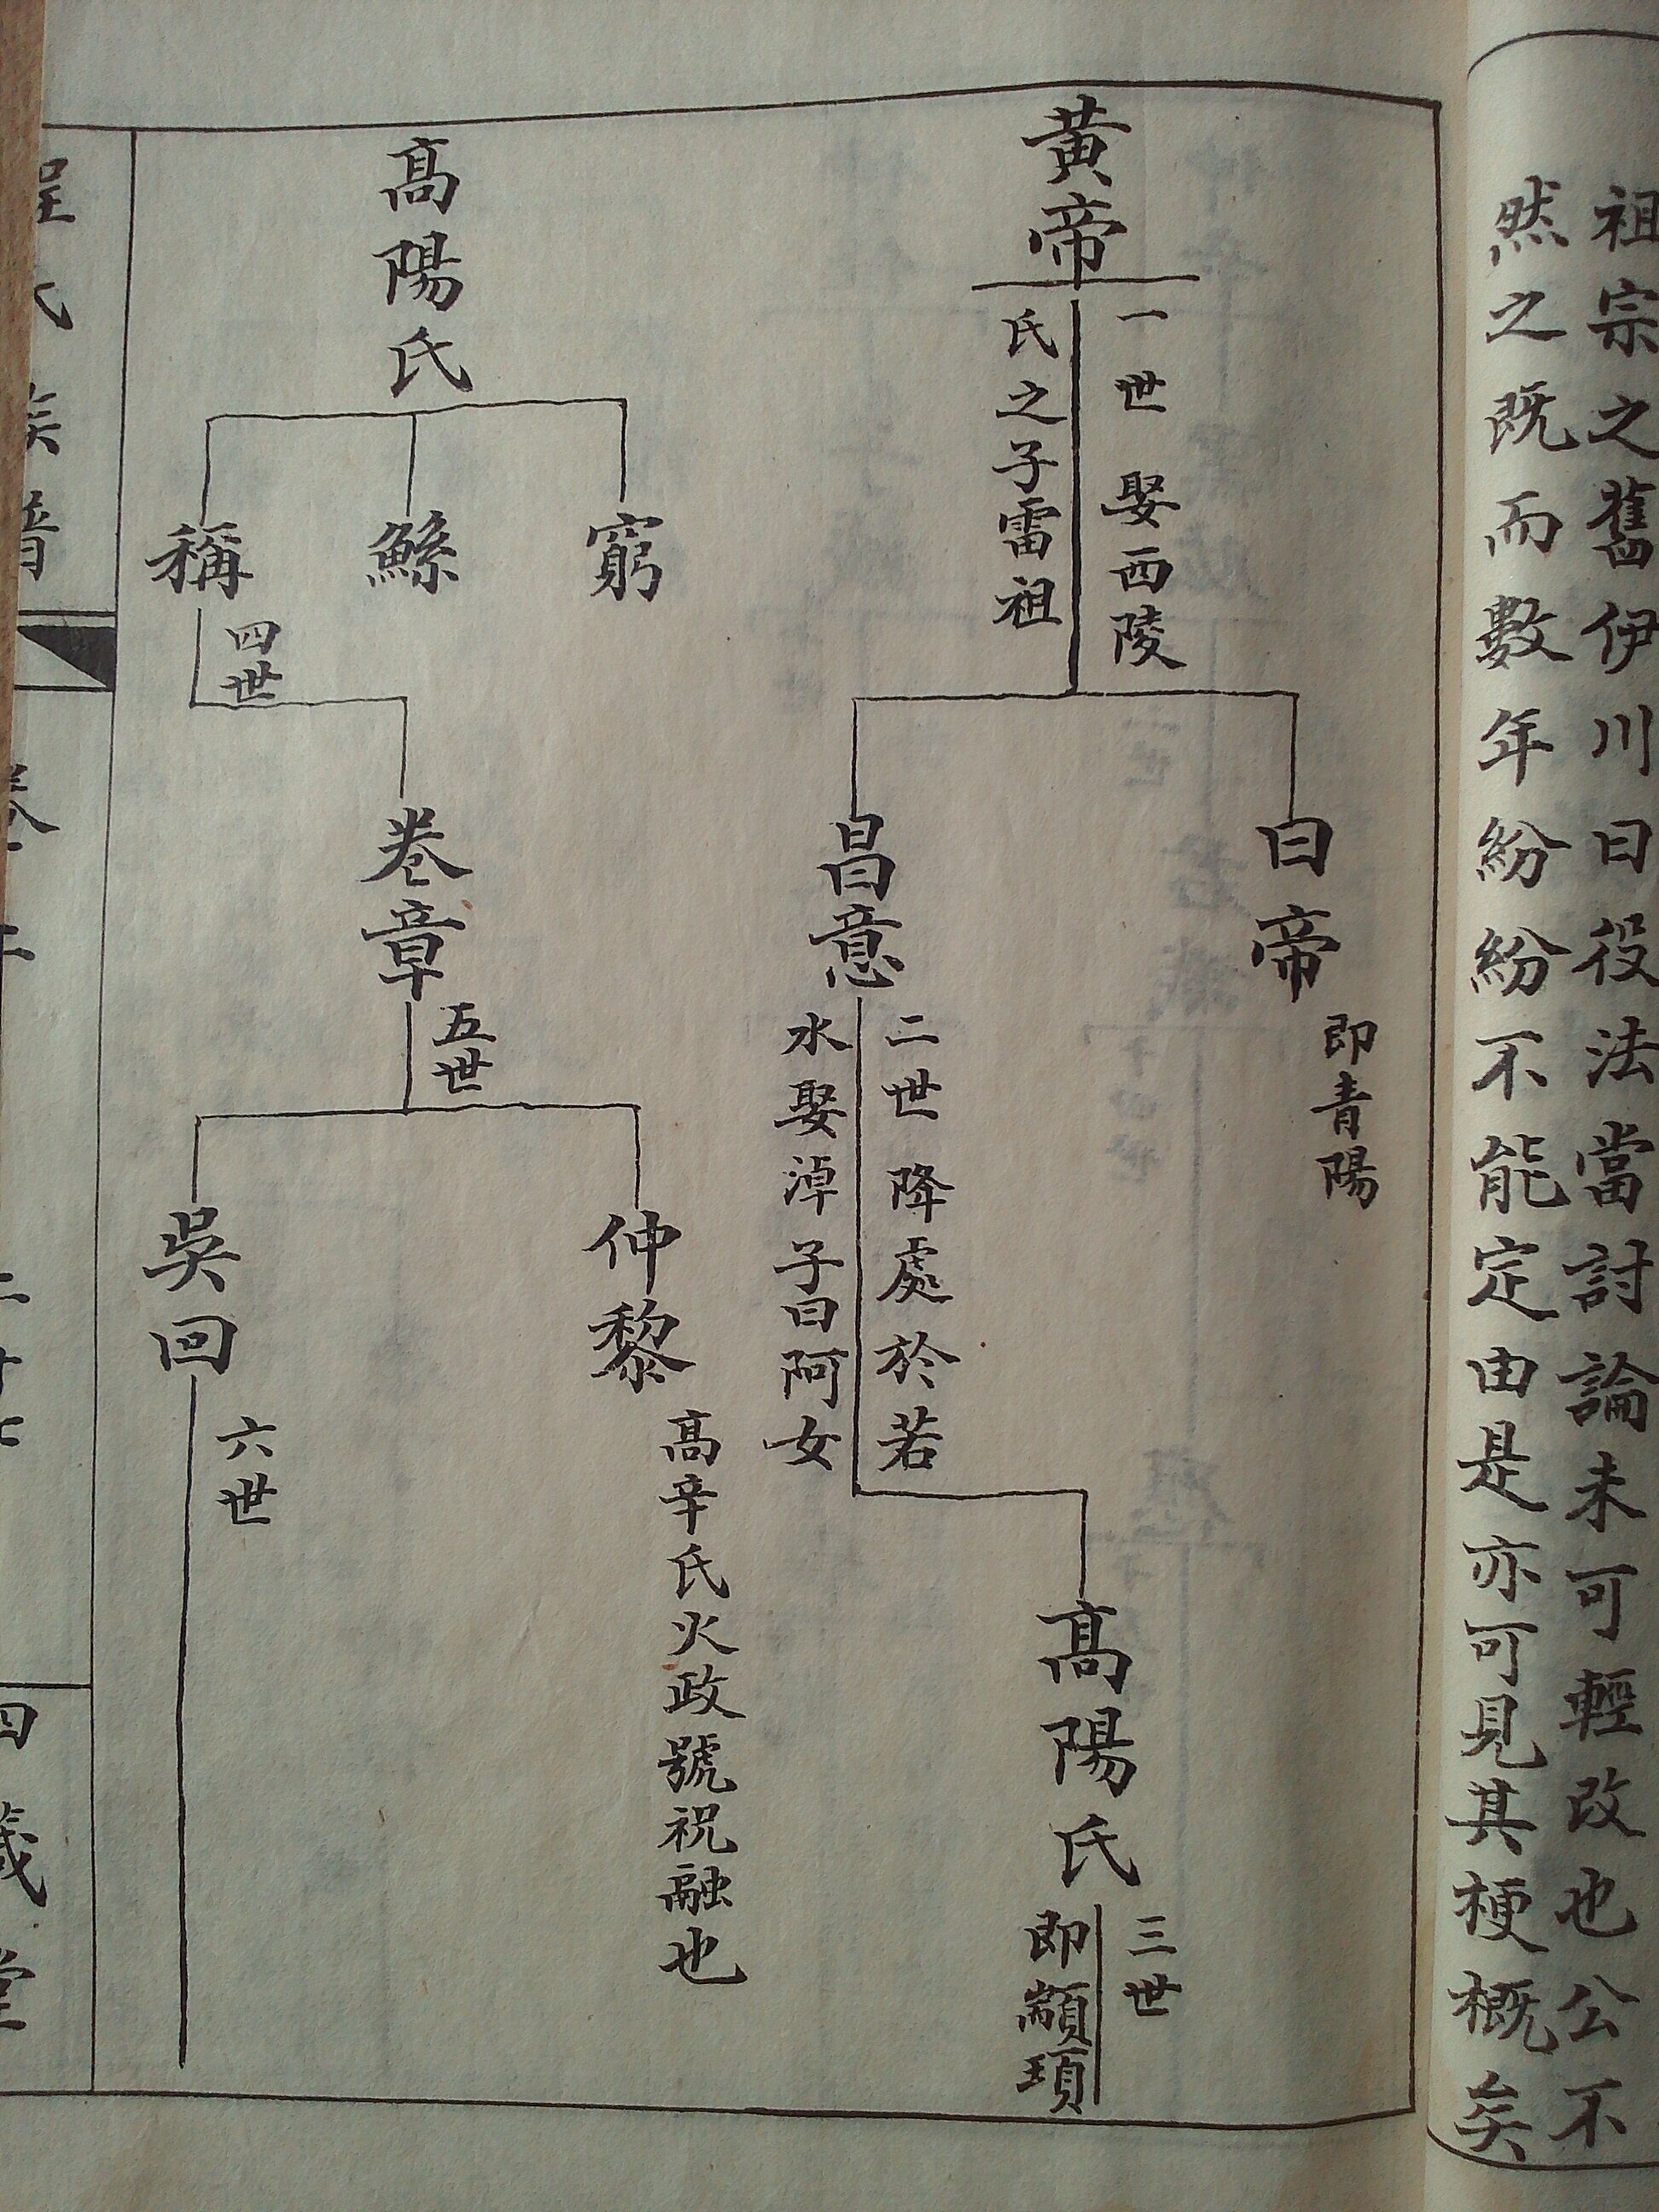 祖宗之舊伊川曰役法當討論未可輕改也公不
然之既而數年紛紛不能定由是亦可見其梗概矣
黃帝
一世 娶西陵
氏之子雷祖
曰帝
即青陽
昌意
二世 降處於若
水娶淖子曰阿女
高陽氏
三世
即顓頊
高陽氏
窮
鯀
稱
四世
卷章
五世
仲黎
高辛氏火政號祝融也
吳回
六世
程氏族譜
四箴堂